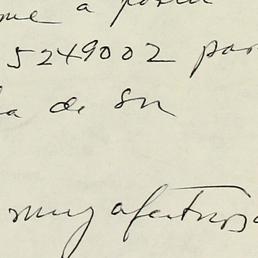 me a
5249002 par
a de su
muy afectuosa